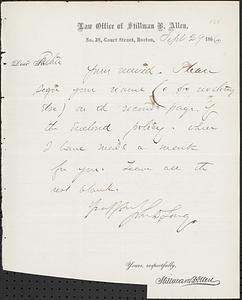 Law Office of Stillman B. Allen,
No. 38, Court Street, Boston, Sept 29 186
Dear Father
Yours received. Please
sign your name (
) on the second page of
the enclosed policy, where
I have made a mark
for you. Leave all the
rest blank.
John D. Long
Yours, respectfully,
Stillman B. Allen